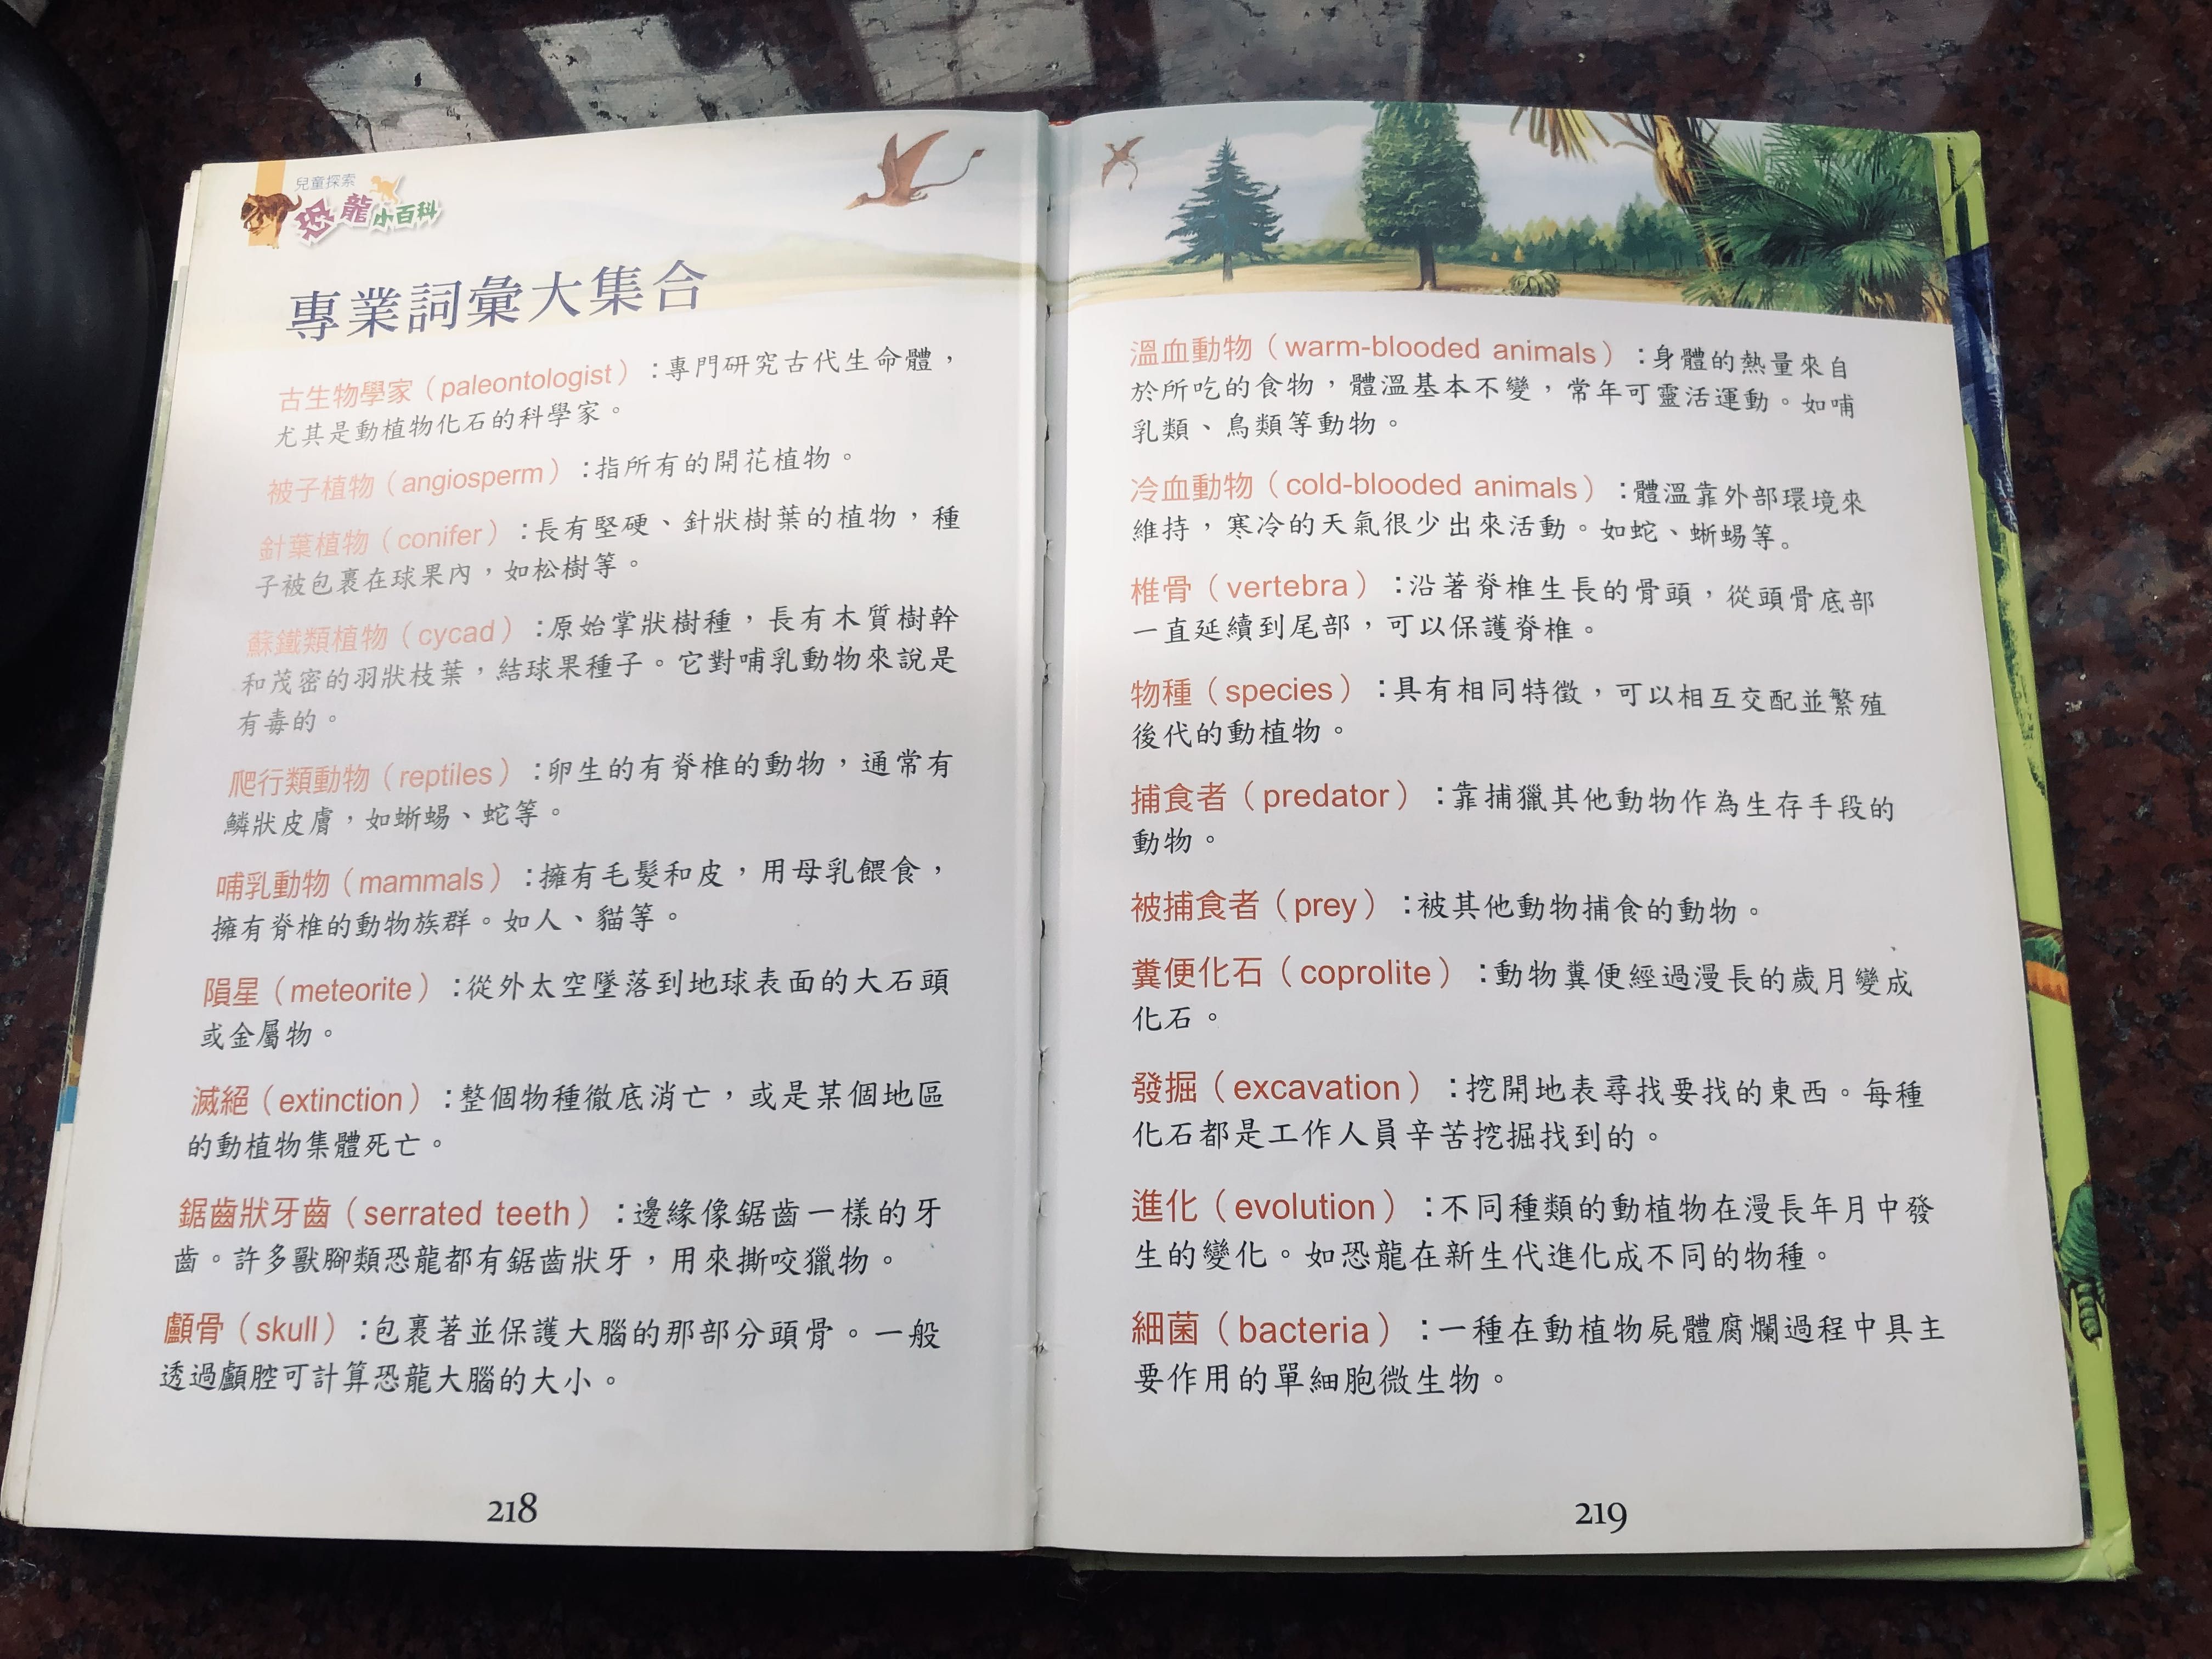 兒童探索
恐龍小百科
專業詞彙大集合
古生物學家（paleontologist）：專門研究古代生命體，
尤其是動植物化石的科學家。
被子植物（angiosperm）：指所有的開花植物。
針葉植物（conifer）：長有堅硬、針狀樹葉的植物，種
子被包裹在球果內，如松樹等。
蘇鐵類植物（cycad）：原始掌狀樹種，長有木質樹幹
和茂密的羽狀枝葉，結球果種子。它對哺乳動物來說是
有毒的。
爬行類動物（reptiles）：卵生的有脊椎的動物，通常有
鱗狀皮膚，如蜥蜴、蛇等。
哺乳動物（mammals）：擁有毛髮和皮，用母乳餵食，
擁有脊椎的動物族群。如人、貓等。
隕星（meteorite）：從外太空墜落到地球表面的大石頭
或金屬物。
滅絕（extinction）：整個物種徹底消亡，或是某個地區
的動植物集體死亡。
鋸齒狀牙齒（serrated teeth）：邊緣像鋸齒一樣的牙
齒。許多獸腳類恐龍都有鋸齒狀牙，用來撕咬獵物。
顱骨（skull）：包裹著並保護大腦的那部分頭骨。一般
透過顱腔可計算恐龍大腦的大小。
218
溫血動物（warm-blooded animals）：身體的熱量來自
於所吃的食物，體溫基本不變，常年可靈活運動。如哺
乳類、鳥類等動物。
冷血動物（cold-blooded animals）：體溫靠外部環境來
維持，寒冷的天氣很少出來活動。如蛇、蜥蜴等。
椎骨（vertebra）：沿著脊椎生長的骨頭，從頭骨底部
一直延續到尾部，可以保護脊椎。
物種（species）：具有相同特徵，可以相互交配並繁殖
後代的動植物。
捕食者（predator）：靠捕獵其他動物作為生存手段的
動物。
被捕食者（prey）：被其他動物捕食的動物。
糞便化石（coprolite）：動物糞便經過漫長的歲月變成
化石。
發掘（excavation）：挖開地表尋找要找的東西。每種
化石都是工作人員辛苦挖掘找到的。
進化（evolution）：不同種類的動植物在漫長年月中發
生的變化。如恐龍在新生代進化成不同的物種。
細菌（bacteria）：一種在動植物屍體腐爛過程中具主
要作用的單細胞微生物。
219